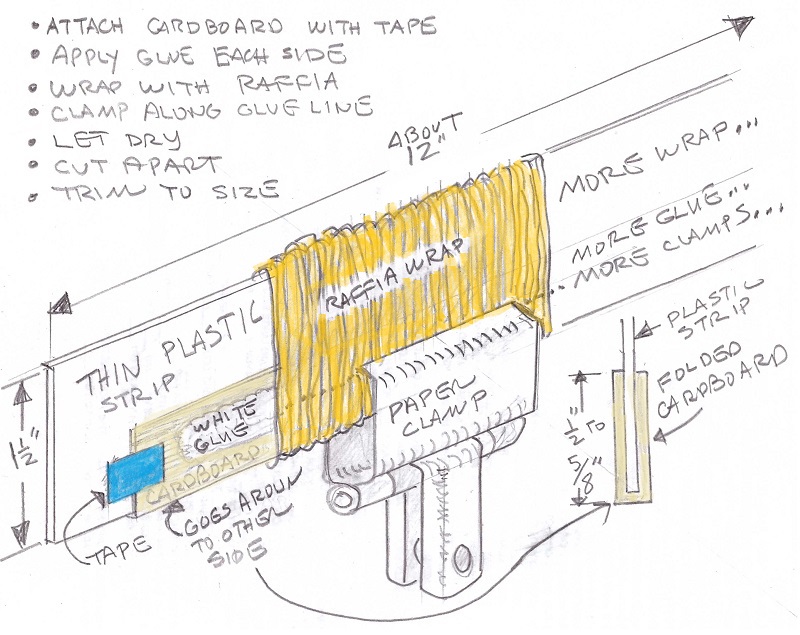 • ATTACH CARDBOARD WITH TAPE
• APPLY GLUE EACH SIDE
• WRAP WITH RAFFIA
• CLAMP ALONG GLUE LINE
• LET DRY
• CUT APART
• TRIM TO SIZE
ABOUT
12"
MORE WRAP...
MORE GLUE...
MORE CLAMPS...
RAFFIA WRAP
THIN PLASTIC
STRIP
PLASTIC
STRIP
FOLDED
CARDBOARD
PAPER
CLAMP
WHITE
GLUE
CARDBOARD
1½"
½" TO
5/8"
TAPE
GOES AROUN
TO OTHER
SIDE